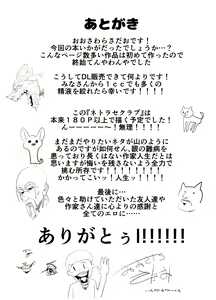 あとがき
おおさわらさだおです！
今回の本いかがだったでしょうか…？
こんなページ数多い作品は初めて作ったので
終始てんやわんやでした
こうしてDL販売できて何よりです！
みなさんから１ｃｃでも多くの
精液を絞れたら幸いです！！！！
この『ネトラセクラブ』は
本来１８０Ｐ以上で描く予定でした！
んーーーーーー〜！無理！！！！
まだまだやりたいネタが山のように
あるのですが如何せん、眼の難病を
患っており長くはない作家人生だとは
思いますが悔いを残さないよう全力で
挑む所存です！！！！！！！！！
かかってこいっ！人生っ！！！！！
最後に…
色々と助けていただいた友人達や
作家さん達に心より の感謝と
全てのエロに……
ありがとぅ!!!!!!!!